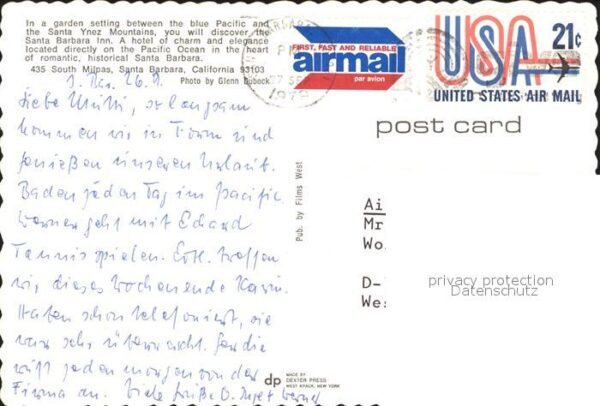 In a garden setting between the blue Pacific and
the Santa Ynez Mountains, you will discover the
Santa Barbara Inn. A hotel of charm and elegance
located directly on the Pacific Ocean in the heart
of romantic, historical Santa Barbara.
435 South Milpas, Santa Barbara, California 93103
Photo by Glenn Dubock
FIRST, FAST AND RELIABLE
airmail
par avion
PM
1976
USA 21c
UNITED STATES AIR MAIL
post card
26.9.
Liebe Mutti, so langsam
kommen wir in Form und
genießen unseren Urlaub.
Baden jeden Tag im Pacific.
Werner geht mit Eduard
Tennis spielen. Evtl. treffen
wir dieses Wochenende Karin.
Haben schon telefoniert, sie
war sehr überrascht. Eddie
ruft jeden morgen von der
Firma an. Viele Grüße Werner
Pub. by Films West
Ai
Mr
Wo
D-
We
privacy protection
Datenschutz
dp
MADE BY
DEXTER PRESS
WEST NYACK, NEW YORK